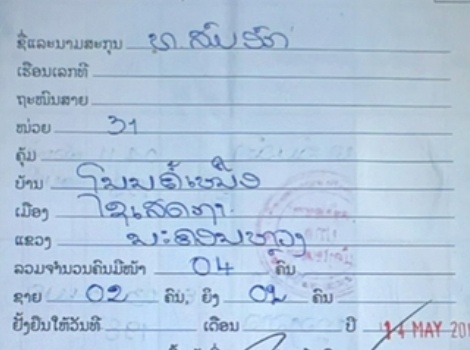 ຊື່ແລະນາມສະກຸນ
ເຮືອນເລກທີ
ຖະໜົນສາຍ
ໜ່ວຍ 31
ຄຸ້ມ
ບ້ານ ໂນນຂີ້ເຫມັງ
ເມືອງ ໄຊເສດຖາ
ແຂວງ ນະຄອນຫຼວງ
ລວມຈຳນວນຄົນມີໜ້າ 04 ຄົນ
ຊາຍ 02 ຄົນ, ຍິງ 02 ຄົນ
ຢັ້ງຢືນໃຫ້ວັນທີ ເດືອນ ປີ 14 MAY 201